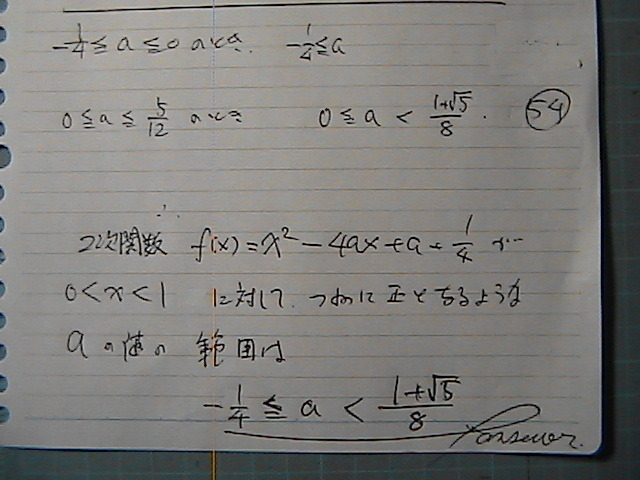 -1/4 ≦ a ≦ 0 のとき -1/4 ≦ a
0 ≦ a ≦ 5/12 のとき 0 ≦ a < (1+√5)/8. 54
∴
2次関数 f(x) = x² - 4ax + a + 1/4 が
0 < x < 1 に対して つねに正となるような
aの値の範囲は
-1/4 ≦ a < (1+√5)/8 Answer